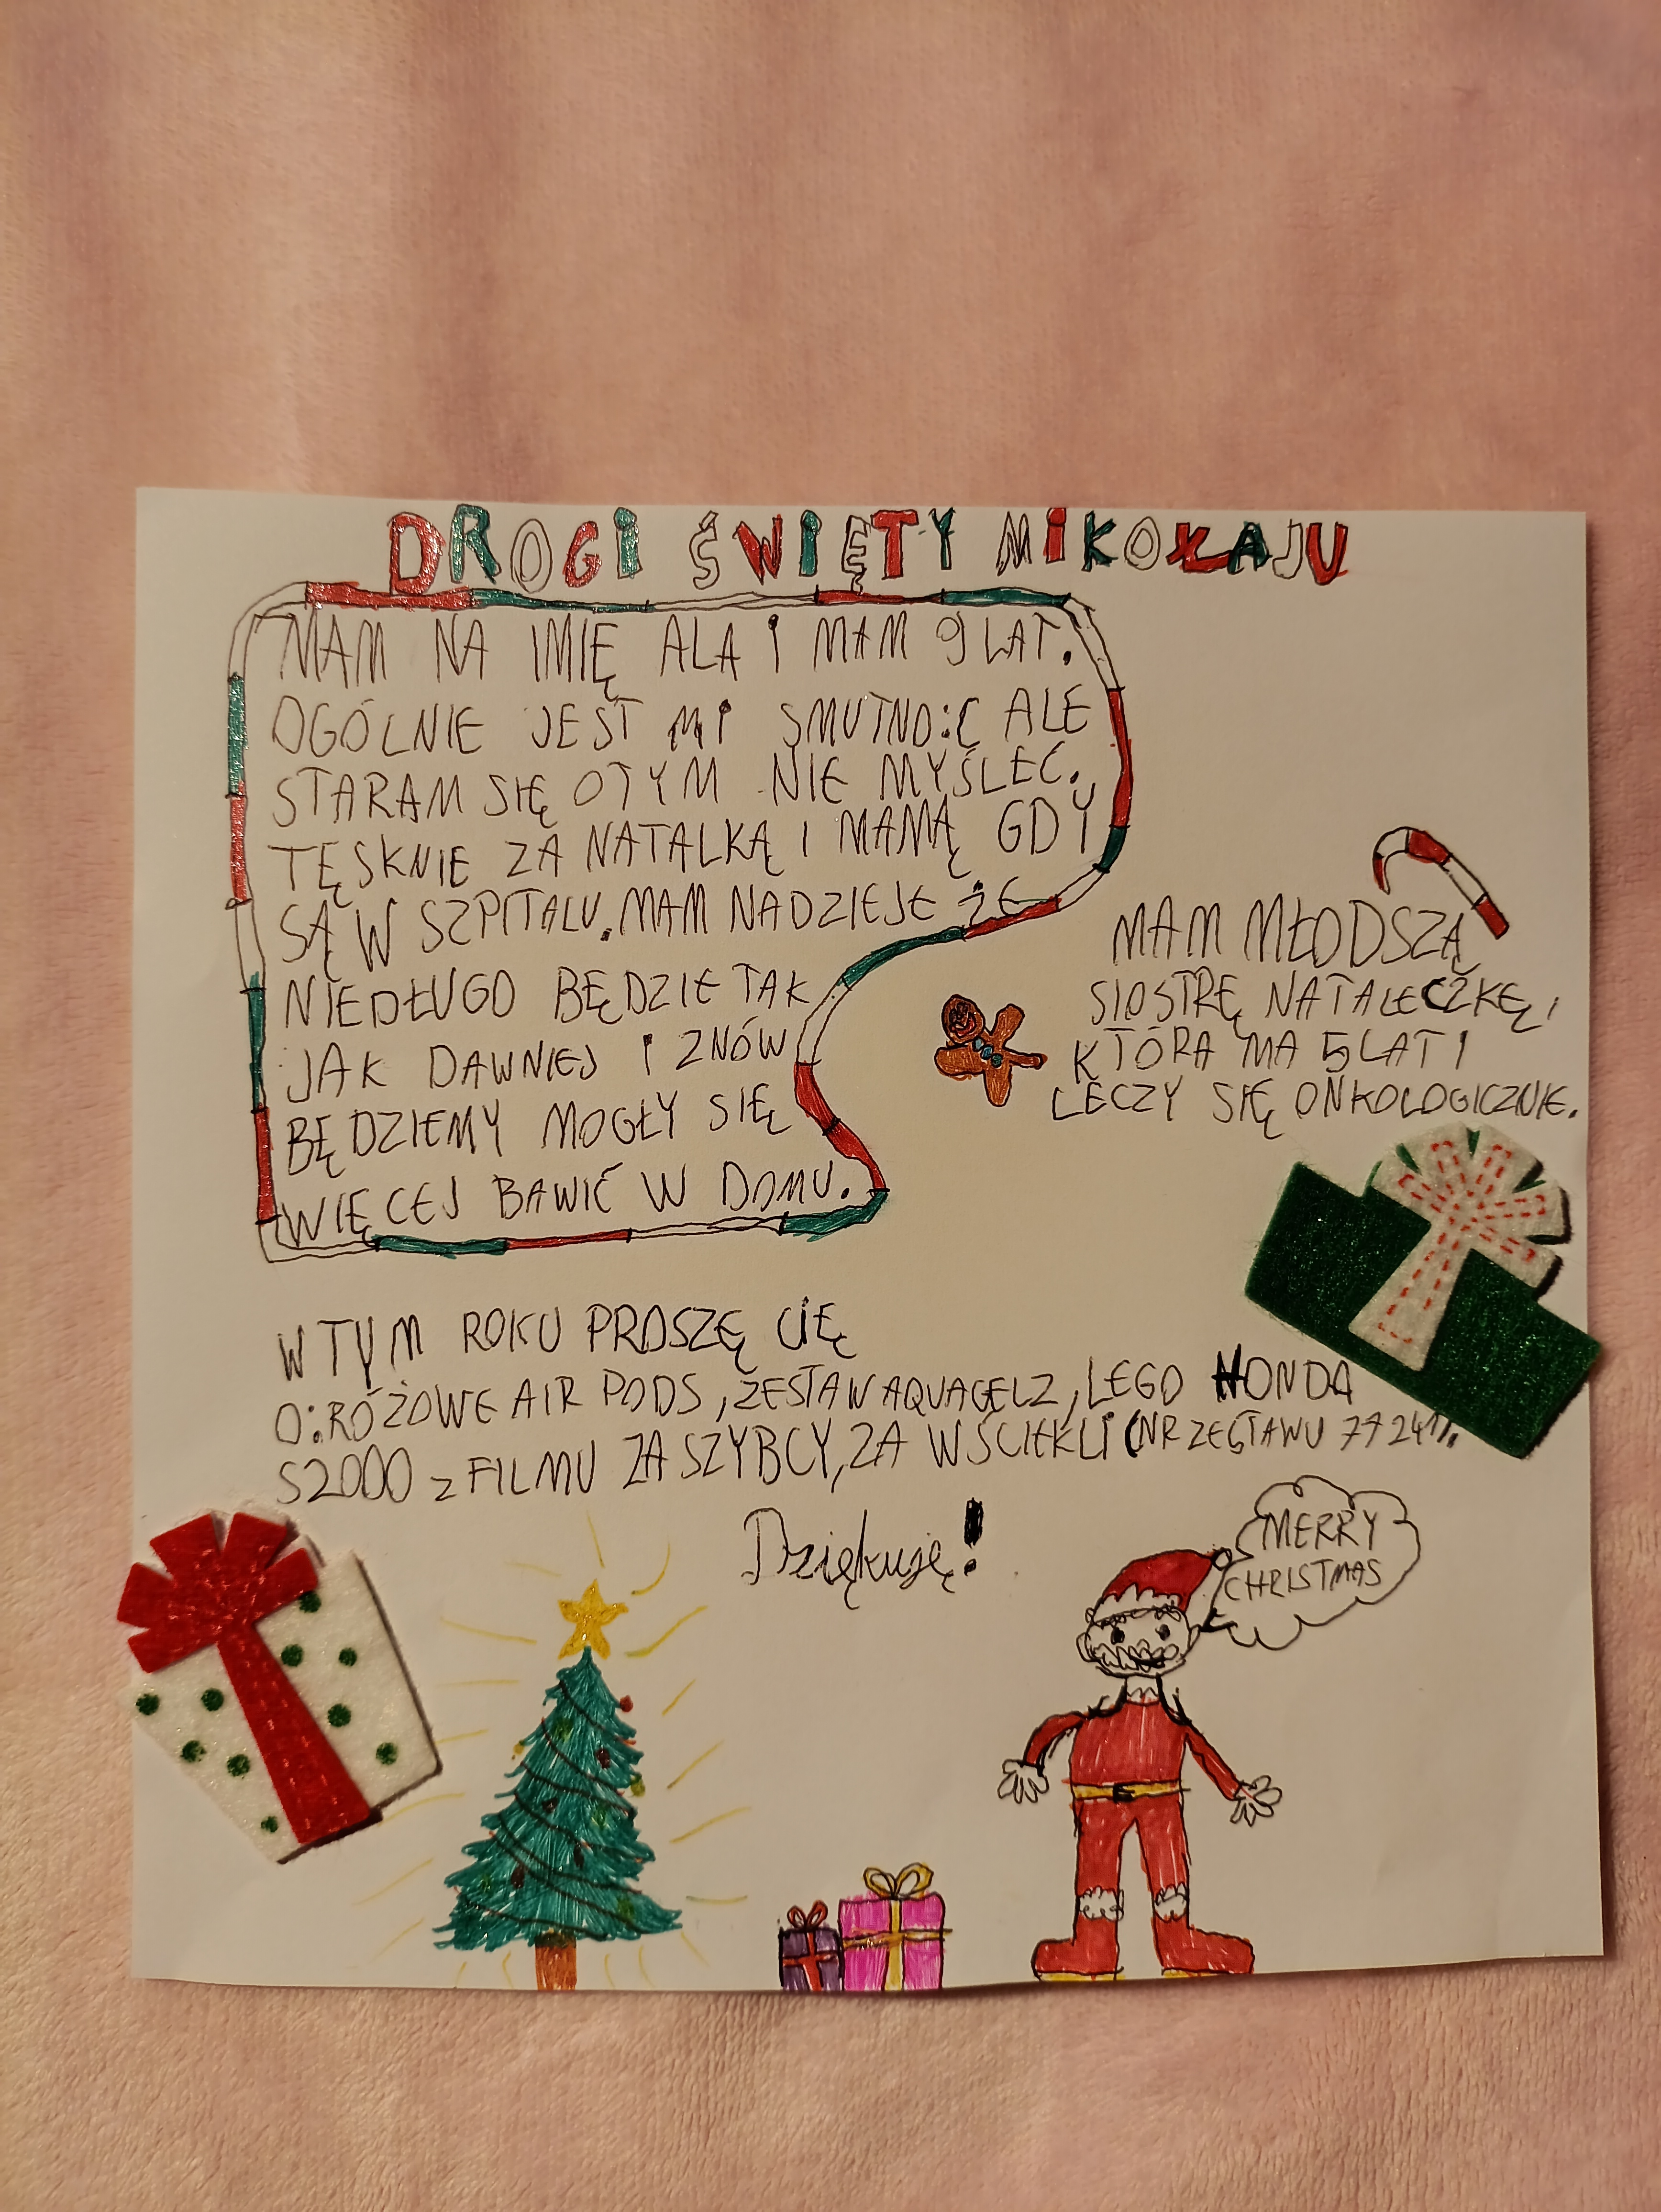 DROGI ŚWIĘTY MIKOŁAJU
MAM NA IMIĘ ALA I MAM 9 LAT.
OGÓLNIE JEST MI SMUTNO:( ALE
STARAM SIĘ O TYM NIE MYŚLEĆ.
TĘSKNIE ZA NATALKĄ I MAMĄ GDY
SĄ W SZPITALU. MAM NADZIEJE ŻE
NIEDŁUGO BĘDZIE TAK
JAK DAWNIEJ I ZNÓW
BĘDZIEMY MOGŁY SIĘ
WIĘCEJ BAWIĆ W DOMU.
MAM MŁODSZĄ
SIOSTRĘ NATALECZKĘ,
KTÓRA MA 5 LAT I
LECZY SIĘ ONKOLOGICZNIE.
W TYM ROKU PROSZĘ CIĘ
O: RÓŻOWE AIR PODS, ZESTAW AQUAGELZ, LEGO HONDA
S2000 z FILMU ZA SZYBCY, ZA WŚCIEKLI (NR ZESTAWU 77241).
Dziękuję!
MERRY
CHRISTMAS